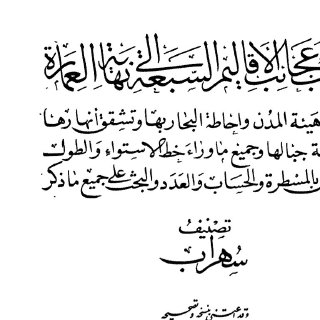 عجائب الاقاليم السبعة الى نهاية العمارة
هيئة المدن واحاطة البحار بها وتشقق انهارها
جبالها وجميع ما وراء خط الاستواء والطول
بالمسطرة والحساب والعدد والبحث على جميع ما ذكر
تصنيف
سهراب
وقد اعتنى بنسخه وتصحيحه